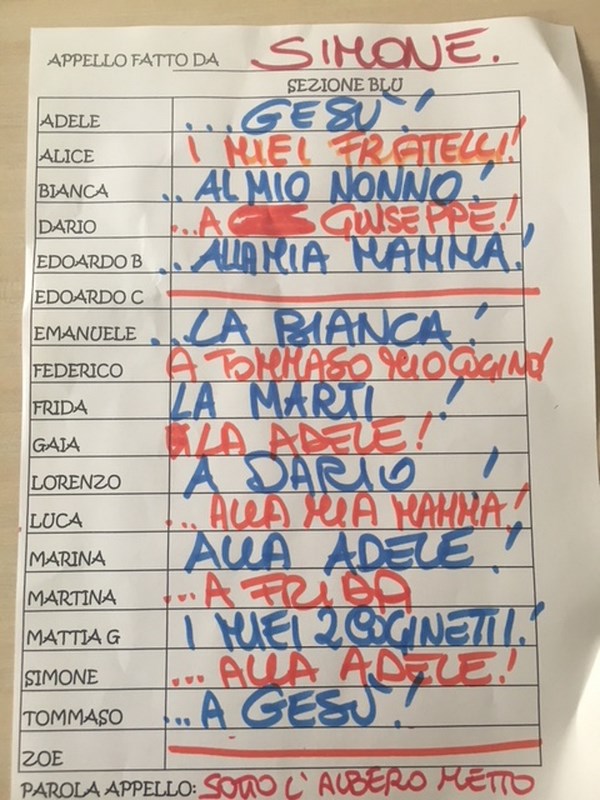 APPELLO FATTO DA SIMONE.
SEZIONE BLU
ADELE ...GESÙ!
ALICE I MIEI FRATELLI!
BIANCA ..AL MIO NONNO!
DARIO ...A GIUSEPPE!
EDOARDO B ..ALLA MIA MAMMA!
EDOARDO C
EMANUELE ...LA BIANCA!
FEDERICO A TOMMASO MIO CUGINO!
FRIDA LA MARTI !
GAIA LA ADELE!
LORENZO A DARIO !
LUCA ...ALLA MIA MAMMA!
MARINA ALLA ADELE!
MARTINA ...A FRIDA
MATTIA G I MIEI 2 CUGINETTI.!
SIMONE ...ALLA ADELE!
TOMMASO ...A GESÙ!
ZOE
PAROLA APPELLO: SOTTO L'ALBERO METTO